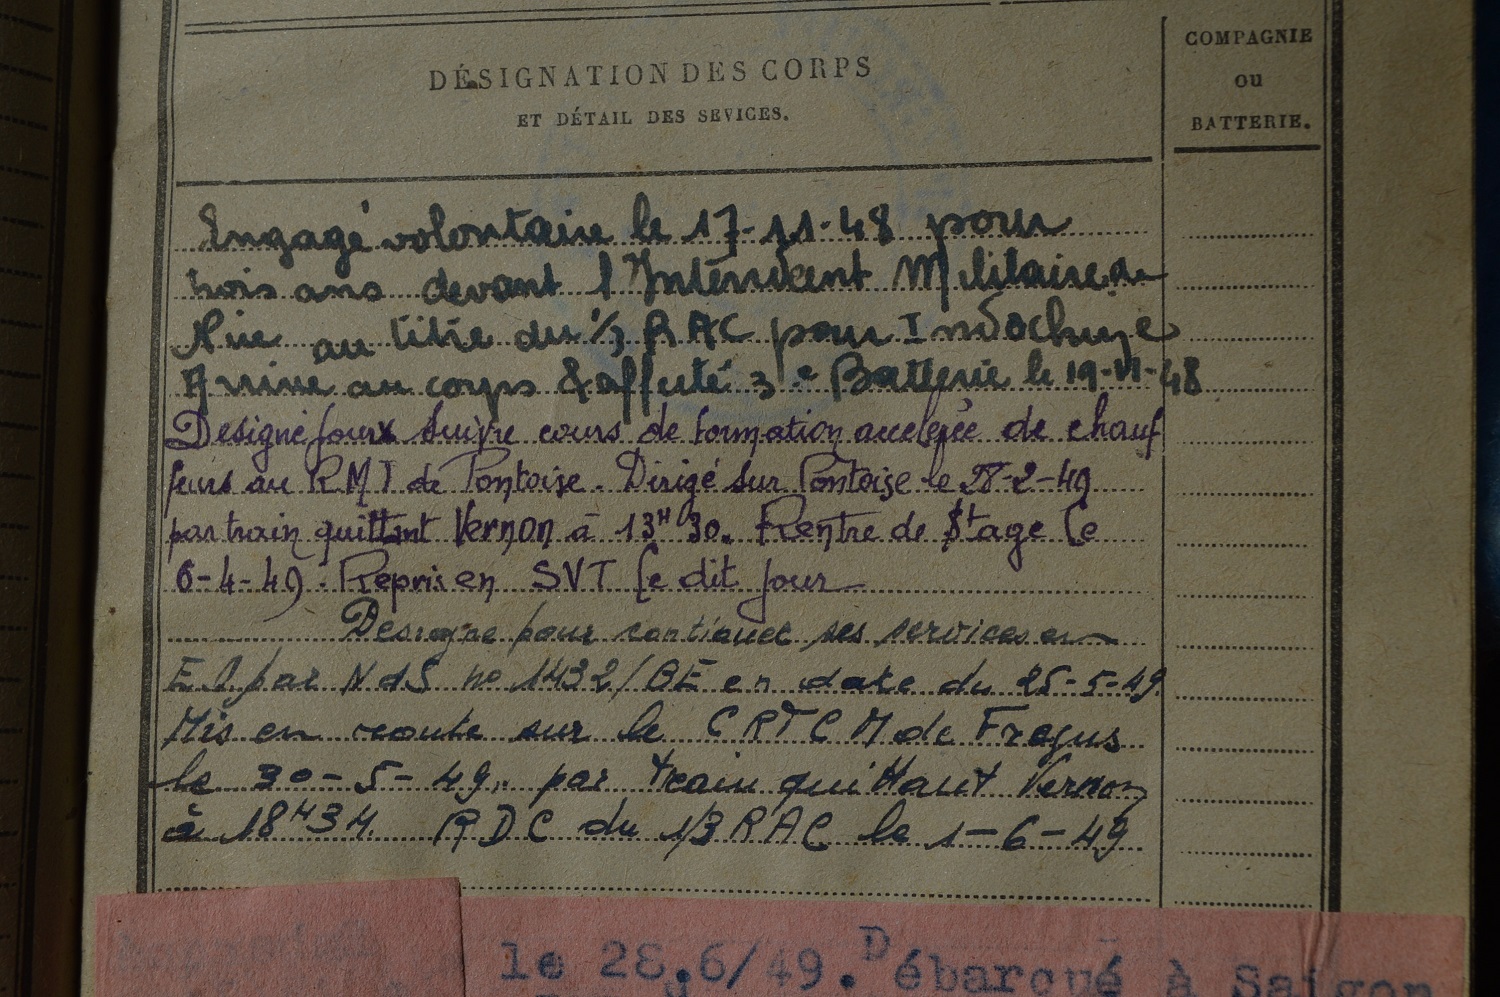 DÉSIGNATION DES CORPS
ET DÉTAIL DES SEVICES.
COMPAGNIE
OU
BATTERIE.
Engagé volontaire le 17-11-48 pour
trois ans devant l'Intendent Militaire de
au titre du 1/3 RAC pour Indochine
Arrive au corps & affecté 3e Batterie le 19-11-48
Designé pour suivre cours de formation accelerée de chauf
feurs au RMT de Pontoise. Dirigé sur Pontoise le 28-2-49
par train quittant Vernon à 13H30. Rentre de Stage le
6-4-49. Repris en SVT le dit jour
Designe pour continuer ses services en
EO par NdS no 1432/BE en date du 25-5-49.
Mis en route sur le CRTCM de Frejus
le 30-5-49. par train quittant Vernon
à 18H34. RDC du 1/3 RAC le 1-6-49
le 28.6/49. Débarqué à Saigon